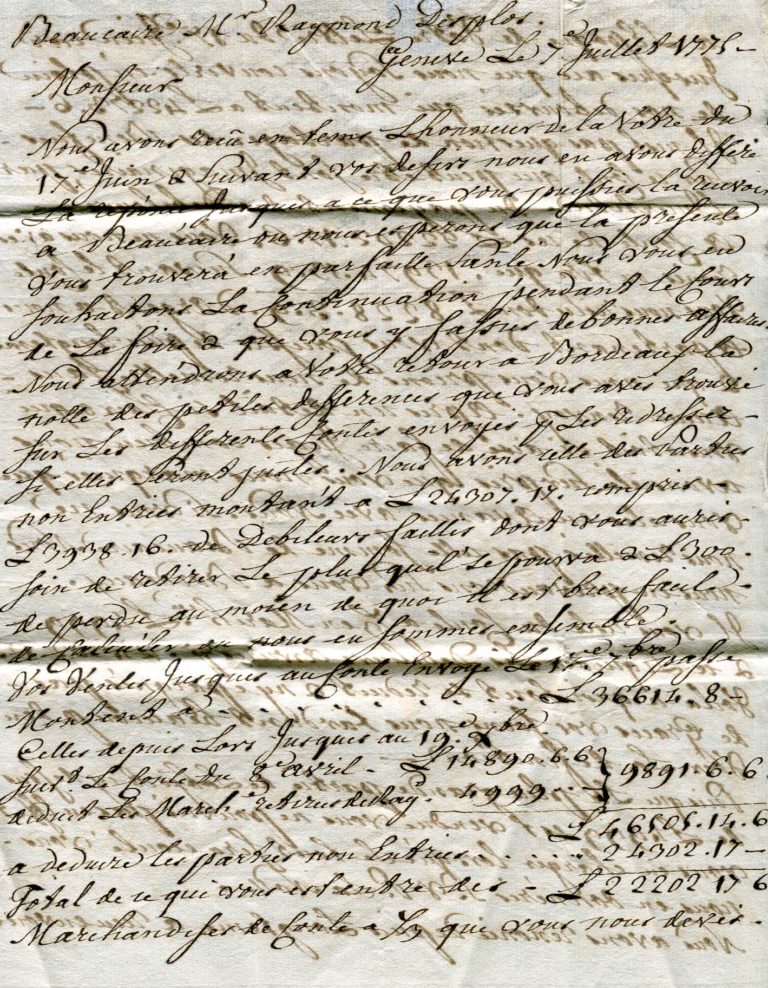 Beaucaire Mr. Raymond Desplos.
Geneve Le 7e Juillet 1775 –
Monsieur
Nous avons recu en tems Lhonneur de la Votre du
17e. Juin & Suivant vos desirs nous en avons differé
La reponce Jusques a ce que vous puissiés la recevoir
a Beaucaire ou nous esperons que la presente
vous trouverá en parfaitte Santé Nous vous en
souhaitons La Continuation pendant le Cours
de La foire & que vous y fassiés de bonnes affaires.
Nous attendrons a Votre retour a Bordeaux la
notte des petites differences que vous avés trouvé
sur Les differents Contes envoyés pr Les redresser –
si elles seront justes. Nous avons celle des Parties
non Entrées montant a L 24307.17. compris –
L 3938.16. de Debiteurs faillis dont vous aurés –
soin de retirer Le plus quil se pourra & L 300.
de perdu au moien de quoi il est bien facile –
de calculer ou nous en sommes ensemble.
Vos Ventes Jusques au Conte Envoyé Le 1 7bre passé
Montent a . . . . . . . . . L 36614.8 –
Celles depuis Lors Jusques au 19e. Xbre
Le Conte du 8e avril – L 14890.6.6 } 9891.6.6
deduit Les Marchses. retirées de Ray. 4999 . . –
L 46505.14.6
a deduire les parties non Entrées . . . . . . 24302.17 –
Total de ce qui vous est entré des – L 22202 17 6
Marchandises de Conte a 1/3 que vous nous devés –